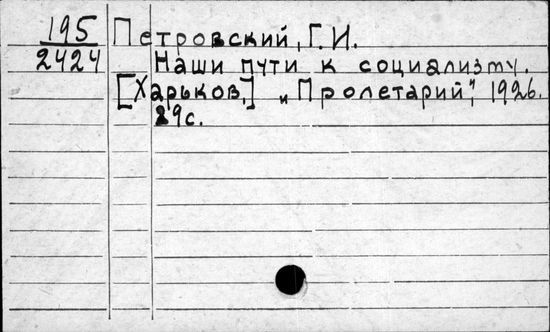 195 Петровский, Г. И.
2424 Наши пути к социализму.
[Харьков,] "Пролетарий", 1926.
89с.